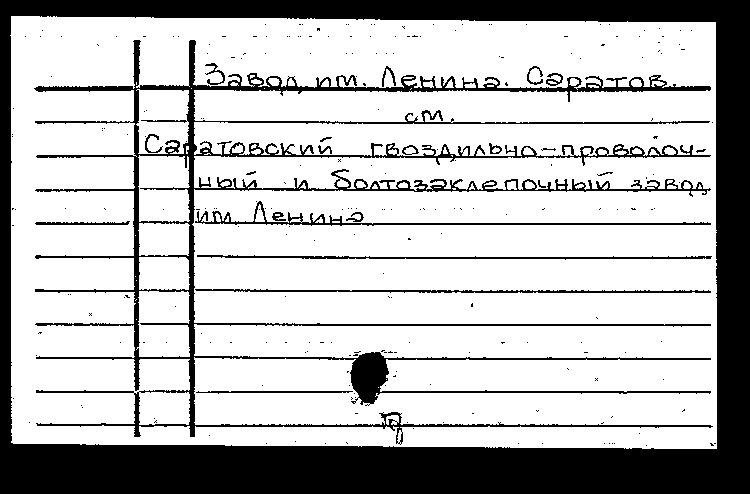 Завод им. Ленина. Саратов.
см.
Саратовский гвоздильно-проволоч-
ный и болтозаклепочный завод
им. Ленина